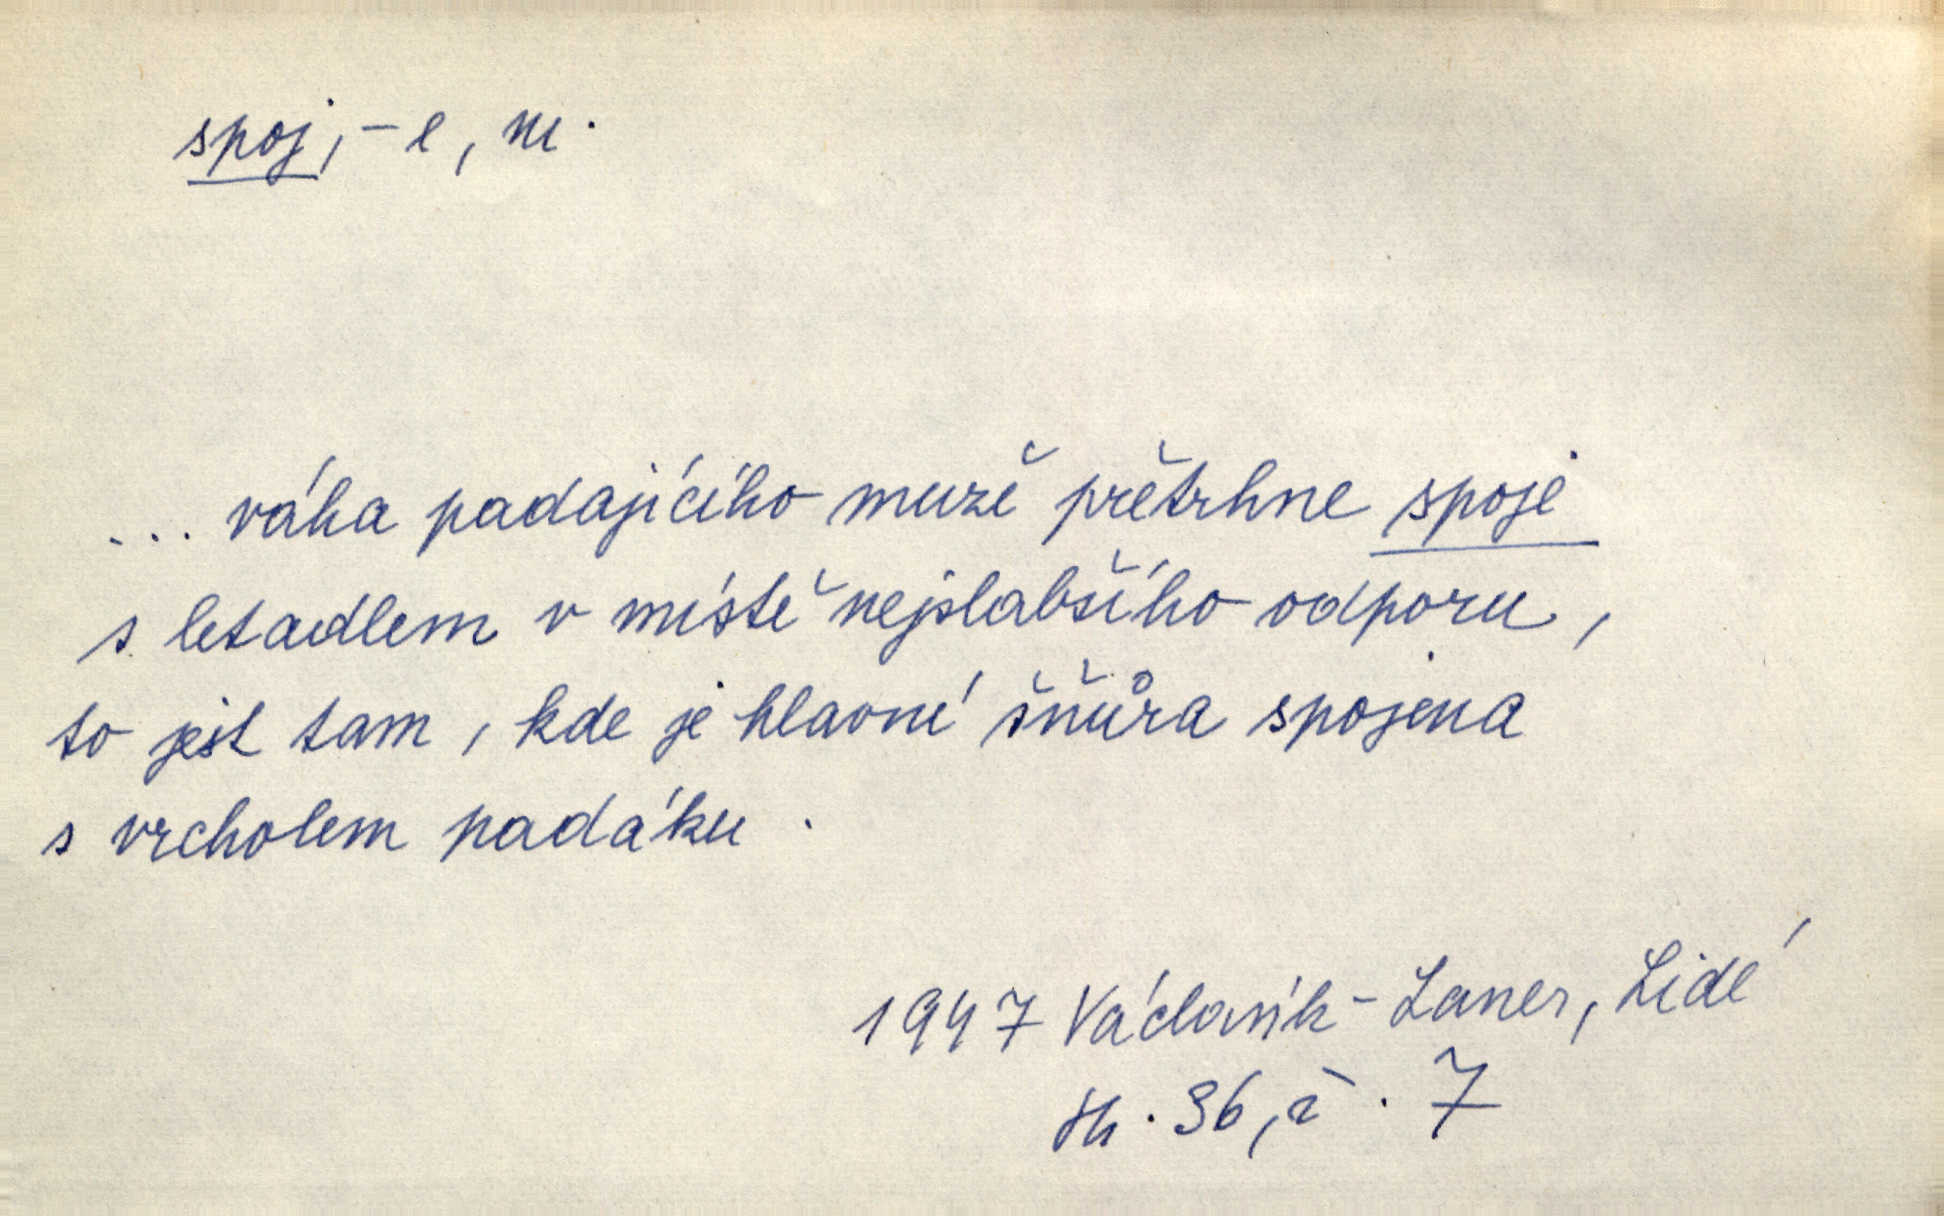 spoj, -e, m.
... váha padajícího muže přetrhne spoje
s letadlem v místě nejslabšího odporu,
to jest tam, kde je hlavní šňůra spojena
s vrcholem padáku.
1947 Václavík-Laner, Lidé
str. 36, ř. 7